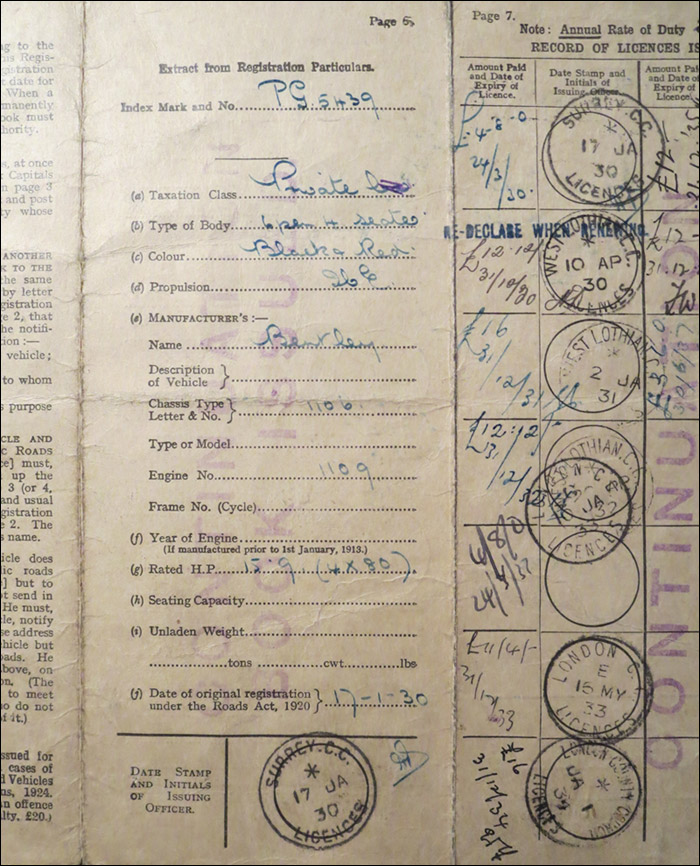 ng to the
his Regis-
gistration
date for
When a
rmanently
ook must
thority.
s, at once
Capitals
n page 3
and post
ty whose
ANOTHER
K TO THE
the same
by letter
gistration
ge 2, that
he notifi-
tion :—
vehicle ;
to whom
s purpose
CLE AND
IC ROADS
ce] must,
up the
3 (or 4,
and usual
gistration
e 2. The
s name.
hicle does
lic roads
] but to
ot send in
He must,
le, notify
se address
ehicle but
oads. He
above, on
on. (The
to meet
ho do not
of it.)
issued for
cases of
d Vehicles
ns, 1924.
an offence
lty, £20.)
Page 6.
Extract from Registration Particulars.
Index Mark and No. PG.5439
(a) Taxation Class Private
(b) Type of Body open 4 seater
(c) Colour Black & Red
(d) Propulsion
(e) MANUFACTURER'S :—
Name Bentley
Description of Vehicle
Chassis Type Letter & No. 1106
Type or Model
Engine No. 1109
Frame No. (Cycle)
(f) Year of Engine
(If manufactured prior to 1st January, 1913.)
(g) Rated H.P. 15.9 (4 x 80)
(h) Seating Capacity
(i) Unladen Weight
tons cwt. lbs
(j) Date of original registration under the Roads Act, 1920 17-1-30
DATE STAMP AND INITIALS OF ISSUING OFFICER.
SURREY.C.C.
17 JA
30
LICENCES
Page 7.
Note: Annual Rate of Duty
RECORD OF LICENCES IS
Amount Paid and Date of Expiry of Licence.
Date Stamp and Initials of Issuing Officer.
Amount Paid and Date of Expiry of Licence.
£4-8-0
24/3/30
SURREY.C.C.
17 JA
30
LICENCES
RE-DECLARE WHEN RENEWING.
£12.12/
31/10/30
WEST LOTHIAN C.C.
10 AP
30
LICENCES
£12
31.12
£16
31/12/31
WEST LOTHIAN
2 JA
31
£12.12
31/12/32
LOTHIAN.C.C.
LONDON C.C.
JA
33
LICENCES
4/8/0
24/3/33
£11/4/-
31/12/33
LONDON C.C.
E
15 MY
33
LICENCES
£16
31/12/34
LONDON COUNTY COUNCIL
JA
34
LICENCES
CONTINUATION